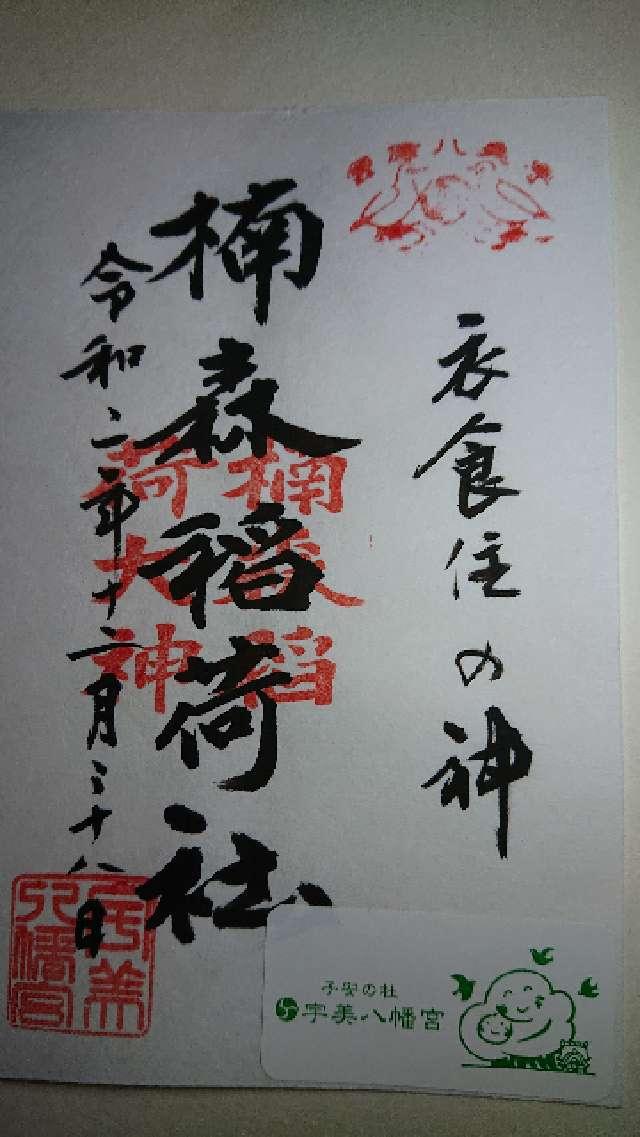 衣食住の神
楠森稲荷社
楠森稲
荷大神
令和二年十二月二十八日
宇美
八幡宮
子安の杜
宇美八幡宮